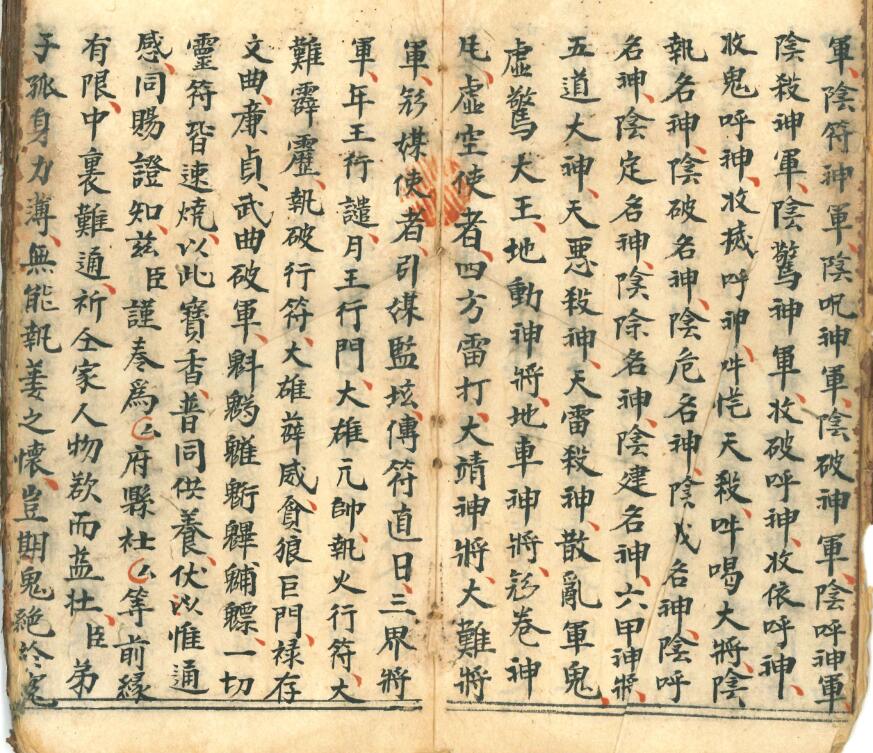 軍、陰符神軍、陰呪神軍、陰破神軍、陰呼神軍、
陰殺神軍、陰驚神軍、收破呼神、收依呼神、
收鬼呼神、收械呼神、吽恍天殺、吽喝大將、陰
執名神、陰破名神、陰危名神、陰成名神、陰呼
名神、陰定名神、陰除名神、陰建名神六甲神將、
五道大神、天惡殺神、天雷殺神、散亂軍鬼
虛驚大王、地動神將、地車神將、衫卷神
虛空使者、四方雷打、大靖神將、大難將
軍、衫媒使者、引媒監垓、傳符直日、三界將
軍、年王行譴、月王行門、大雄元帥、執火行符、大
難霹靂、執破行符、大雄薛威、貪狼巨門、祿存
文曲、廉貞武曲破軍、魁魒、一切
靈符皆速燒、以此寶香、普同供養、伏以惟通
感、同賜證知、玆臣謹奏爲厶府縣社厶等前緣
有限、中裏難通、祈仝家人物欲而益壯、臣弟
子孤身力薄、無能執姜之懷、豈期鬼絕於寃